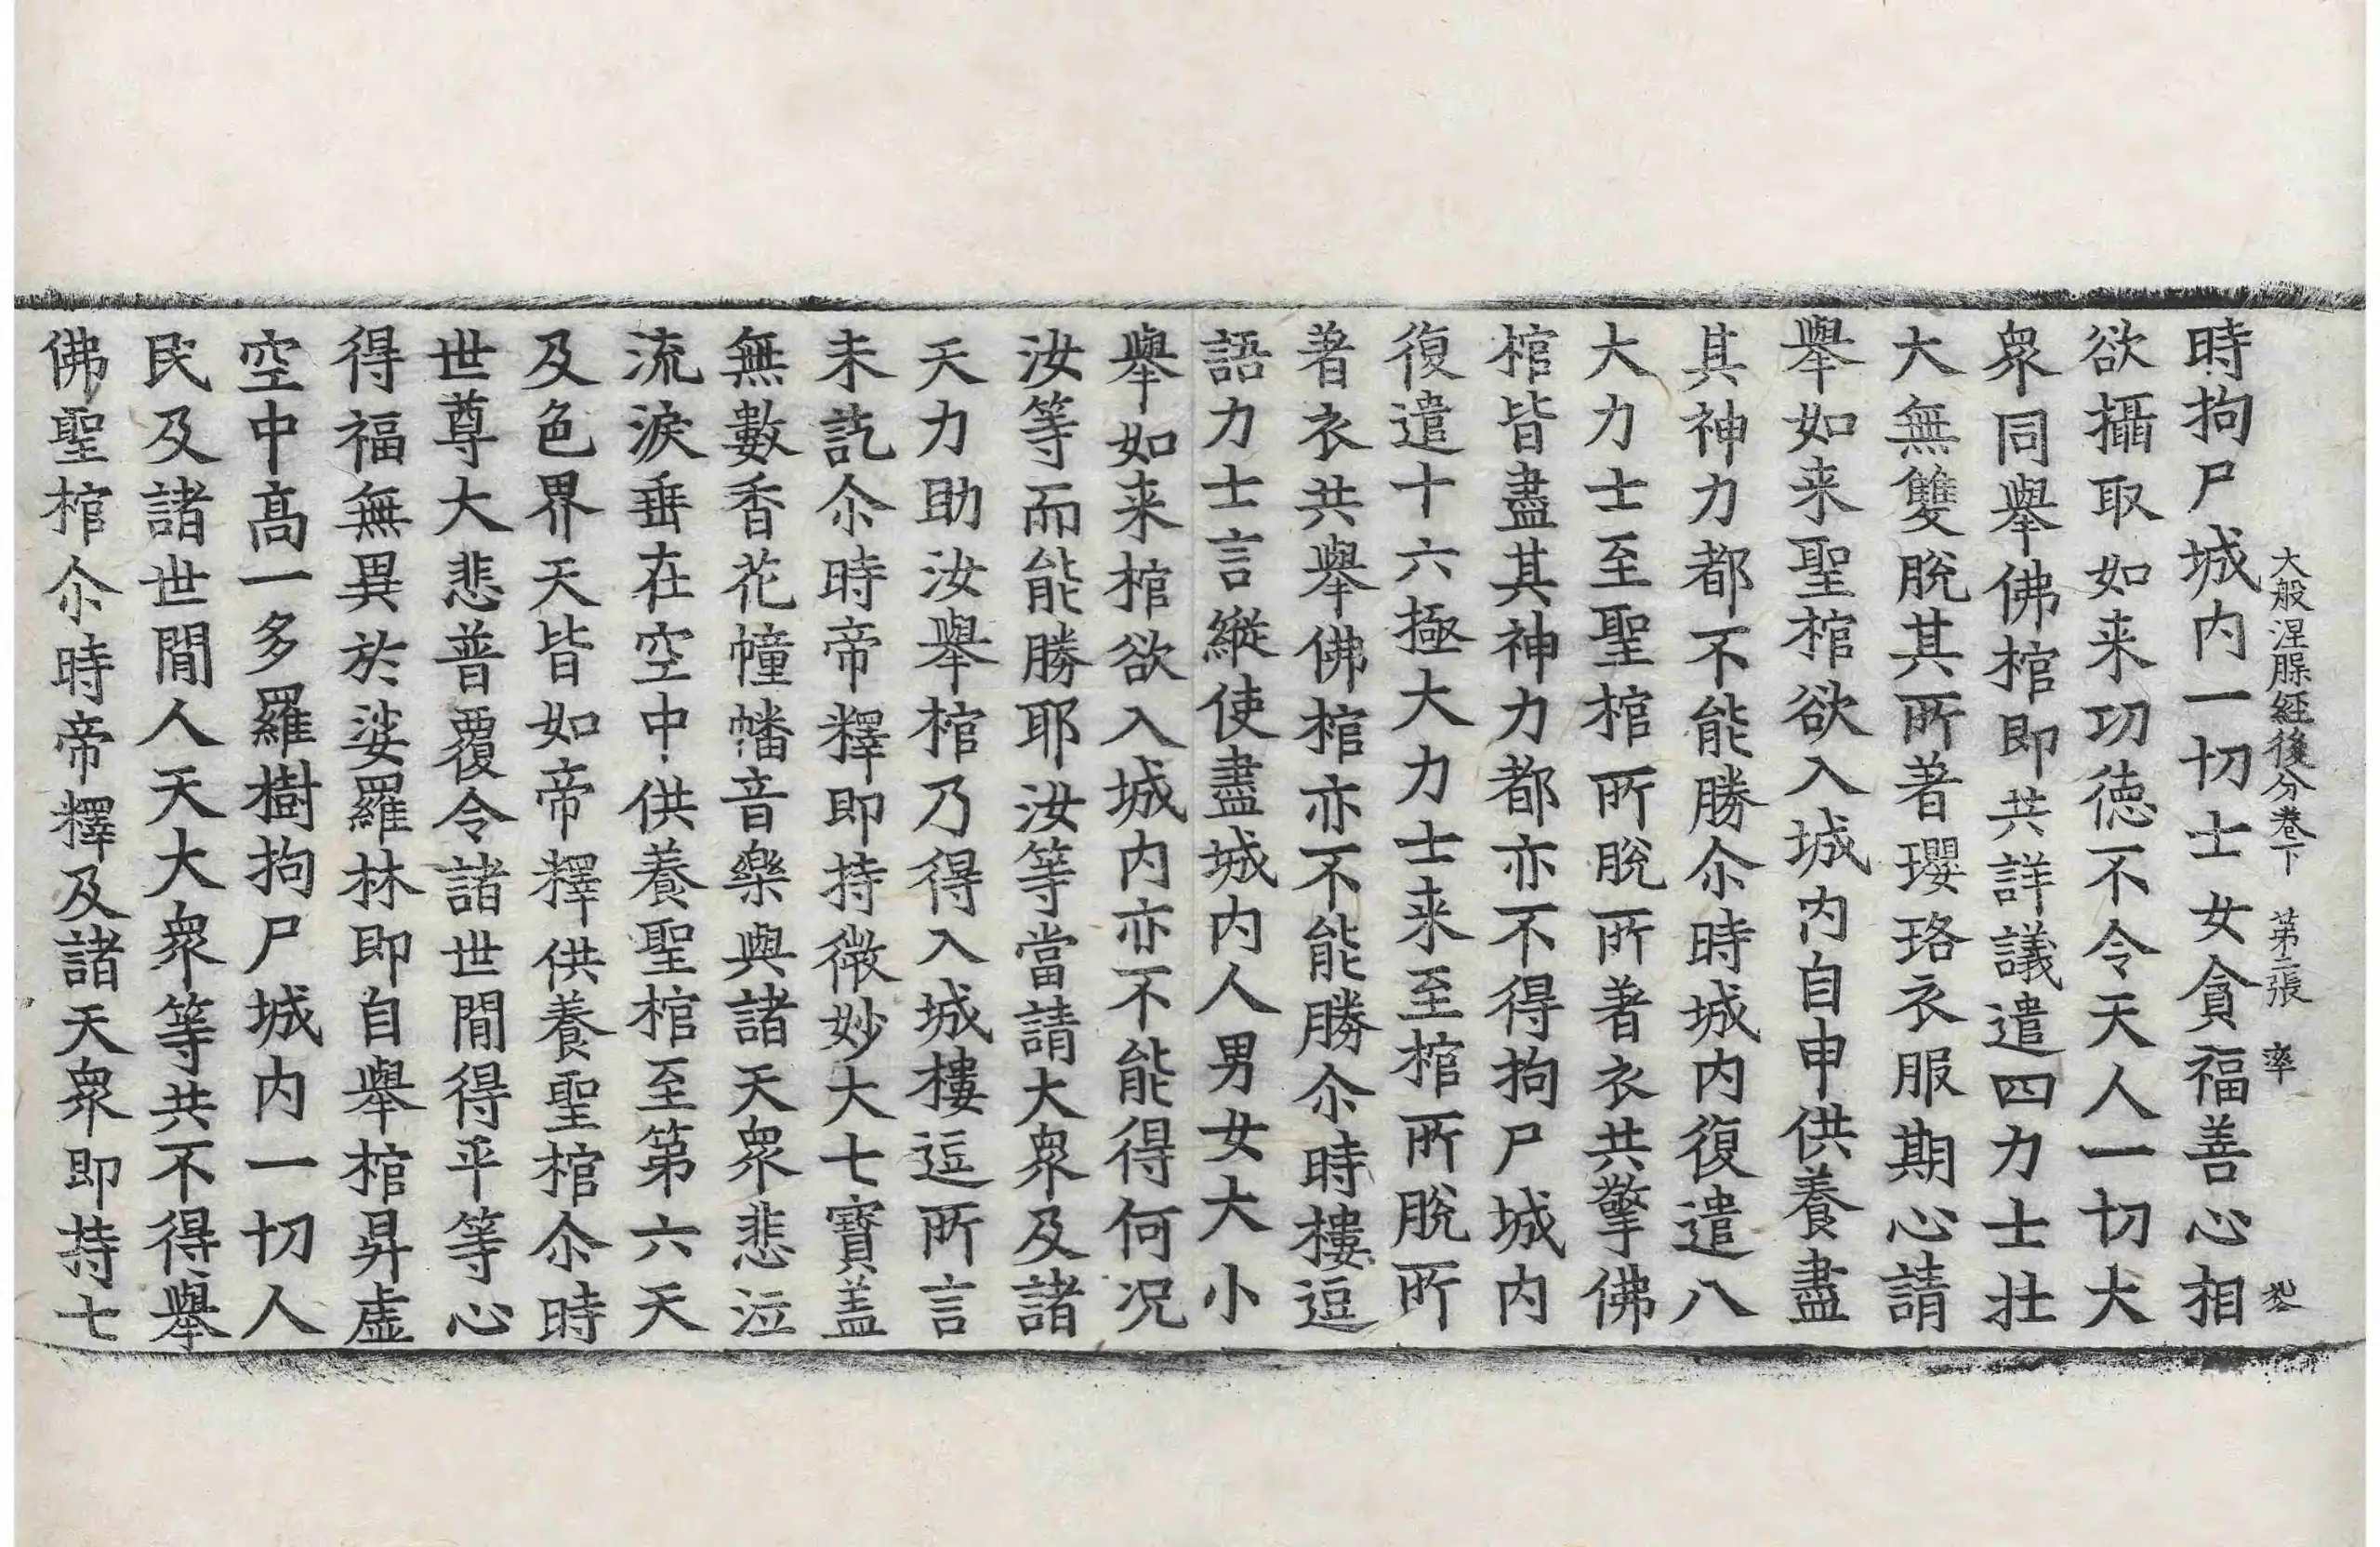 大般涅槃經後分卷下　第三張　率
時拘尸城内一切士女貪福善心相
欲攝取如来功德不令天人一切大
衆同舉佛棺即共詳議遣四力士壮
大無雙脫其所著瓔珞衣服期心請
舉如来聖棺欲入城内自申供養盡
其神力都不能勝尒時城内復遣八
大力士至聖棺所脫所著衣共擎佛
棺皆盡其神力都亦不得拘尸城内
復遣十六極大力士来至棺所脫所
著衣共舉佛棺亦不能勝尒時樓逗
語力士言縱使盡城内人男女大小
舉如来棺欲入城内亦不能得何况
汝等而能勝耶汝等當請大衆及諸
天力助汝舉棺乃得入城樓逗所言
未訖尒時帝釋即持微妙大七寶盖
無數香花幢幡音樂與諸天衆悲泣
流淚垂在空中供養聖棺至第六天
及色界天皆如帝釋供養聖棺尒時
世尊大悲普覆令諸世間得平等心
得福無異於娑羅林即自舉棺昇虛
空中高一多羅樹拘尸城内一切人
民及諸世間人天大衆等共不得舉
佛聖棺尒時帝釋及諸天衆即持七